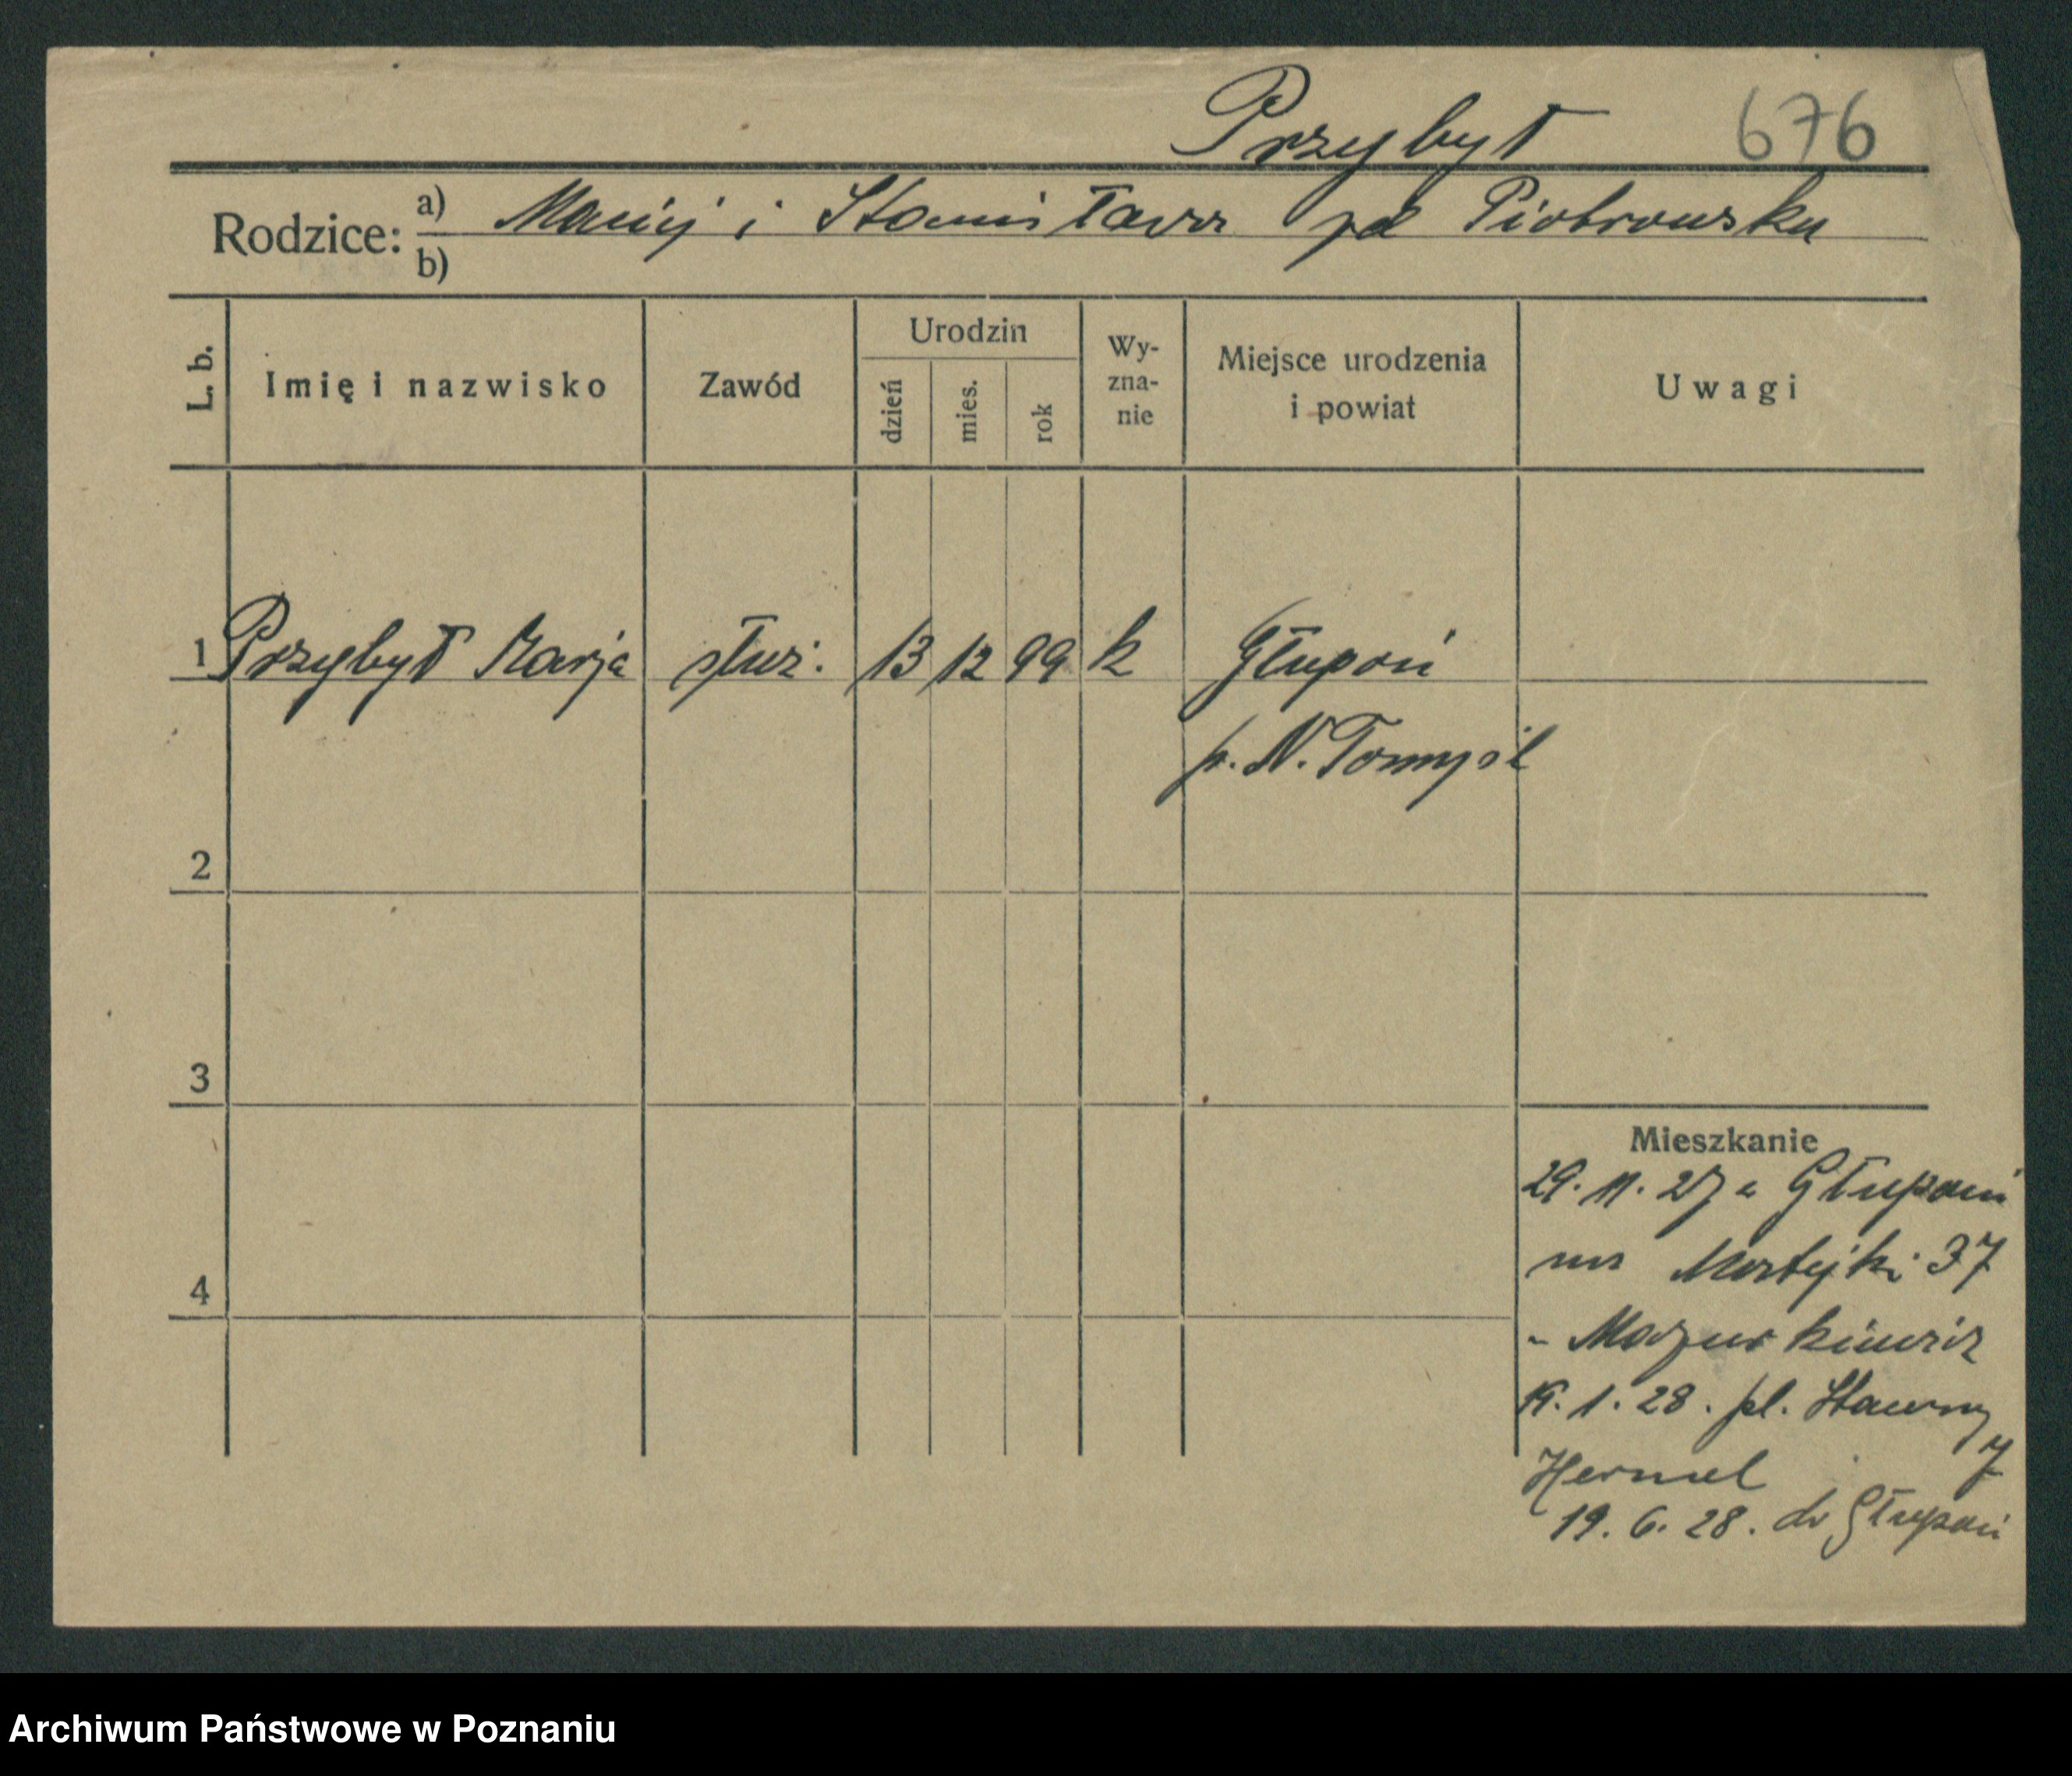 Przybył 676
Rodzice: a) Maciej i Stanisława zd Piotrowska
b)
L. b. Imię i nazwisko Zawód Urodzin dzień mies. rok Wy-zna-nie Miejsce urodzenia i powiat Uwagi
1 Przybył Marja służ. 13 12 99 k Głupoń
p. N. Tomyśl
2
3
4
Mieszkanie
29. 11. 27 z Głuponi
na Matejki 37
Mazurkiewicz
1. 28. pl. Sławny
7
Hermel
19. 6. 28. do Głupoń
Archiwum Państwowe w Poznaniu